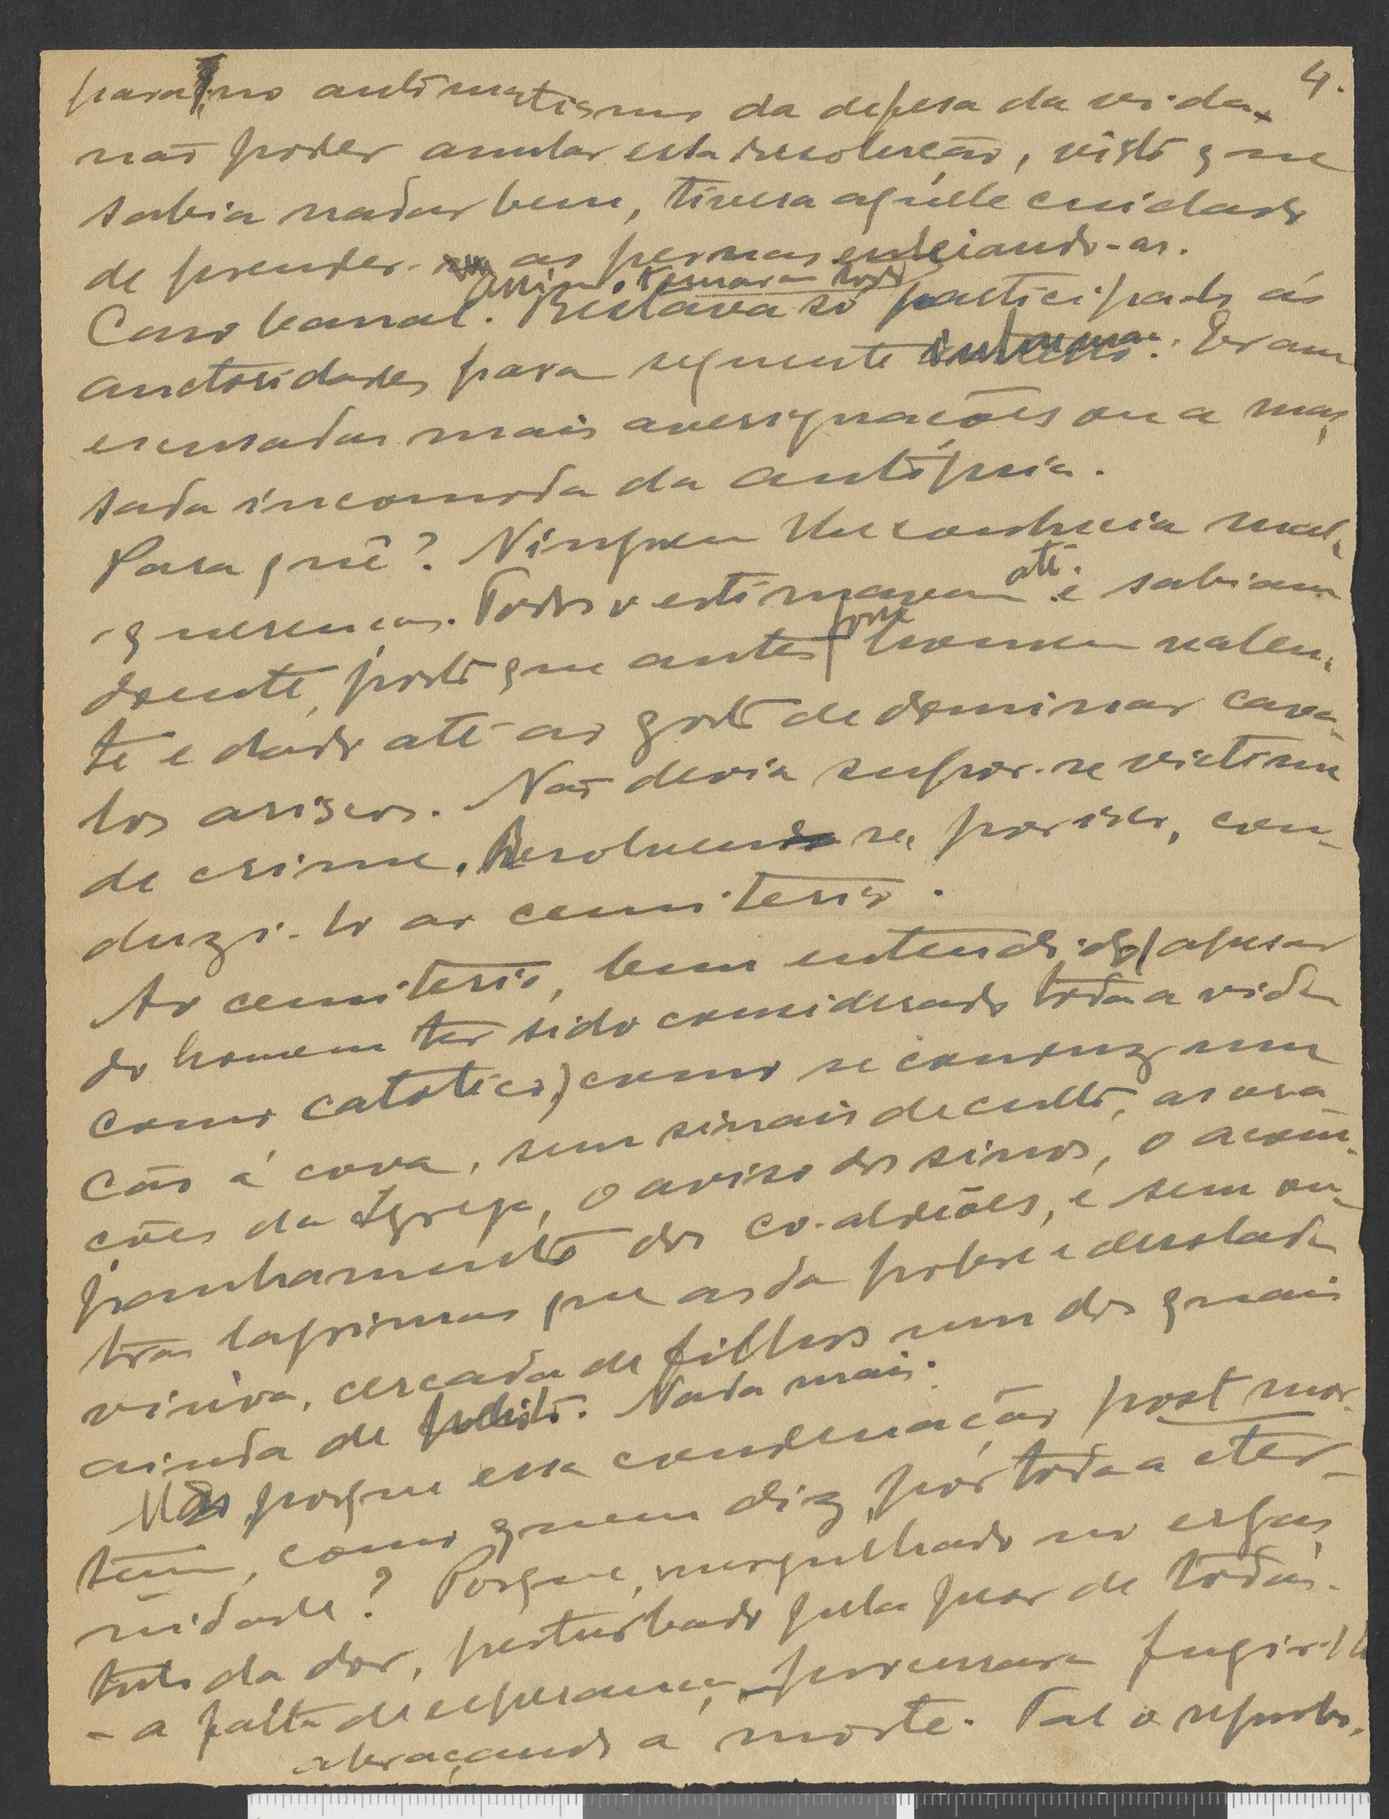 4.
para no automatismo da defesa da vida
não poder anular esta resolução, visto que
sabia nadar bem, tivera aquele cuidado
de prender as pernas enleiando-as.
assim o tomaram todos
Caso banal. Restava só participado ás
auctoridades para seguente Eram
escusadas mais averiguações ou a mas,
sada incomoda da autópsia.
Para quê? Ninguem lhe conhecia mal,
-querenças. Todos o estimavam até e sabiam
doente, posto que antes fosse homem valen,
te e dado até ao gosto de dominar cava,
los ariscos. Não devia supor-se victima
de crime. Resolveu se, por isso, con-
duzi-lo ao cemiterio.
Ao cemiterio, bem entendido (apesar
do homem ter sido considerado toda a vida
como catolico) como se conduz um
cão á cova, sem sinais de culto, as ora
ções da Igreja, o aviso dos sinos, o acom-
panhamento dos co-aldeões, e sem ou-
tras lagrimas que as da pobre e desolada
viuva, cercada de filhos um dos quais
ainda de peito. Nada mais.
Mas porque essa condenação post mor-
tem, como quem diz por toda a eter-
nidade? Porque, mergulhado no ergas,
tulo da dor, perturbado pela peor de todas
- a falta de esperança, procurara fugir-lh
abraçando a morte. Tal o reprobo,